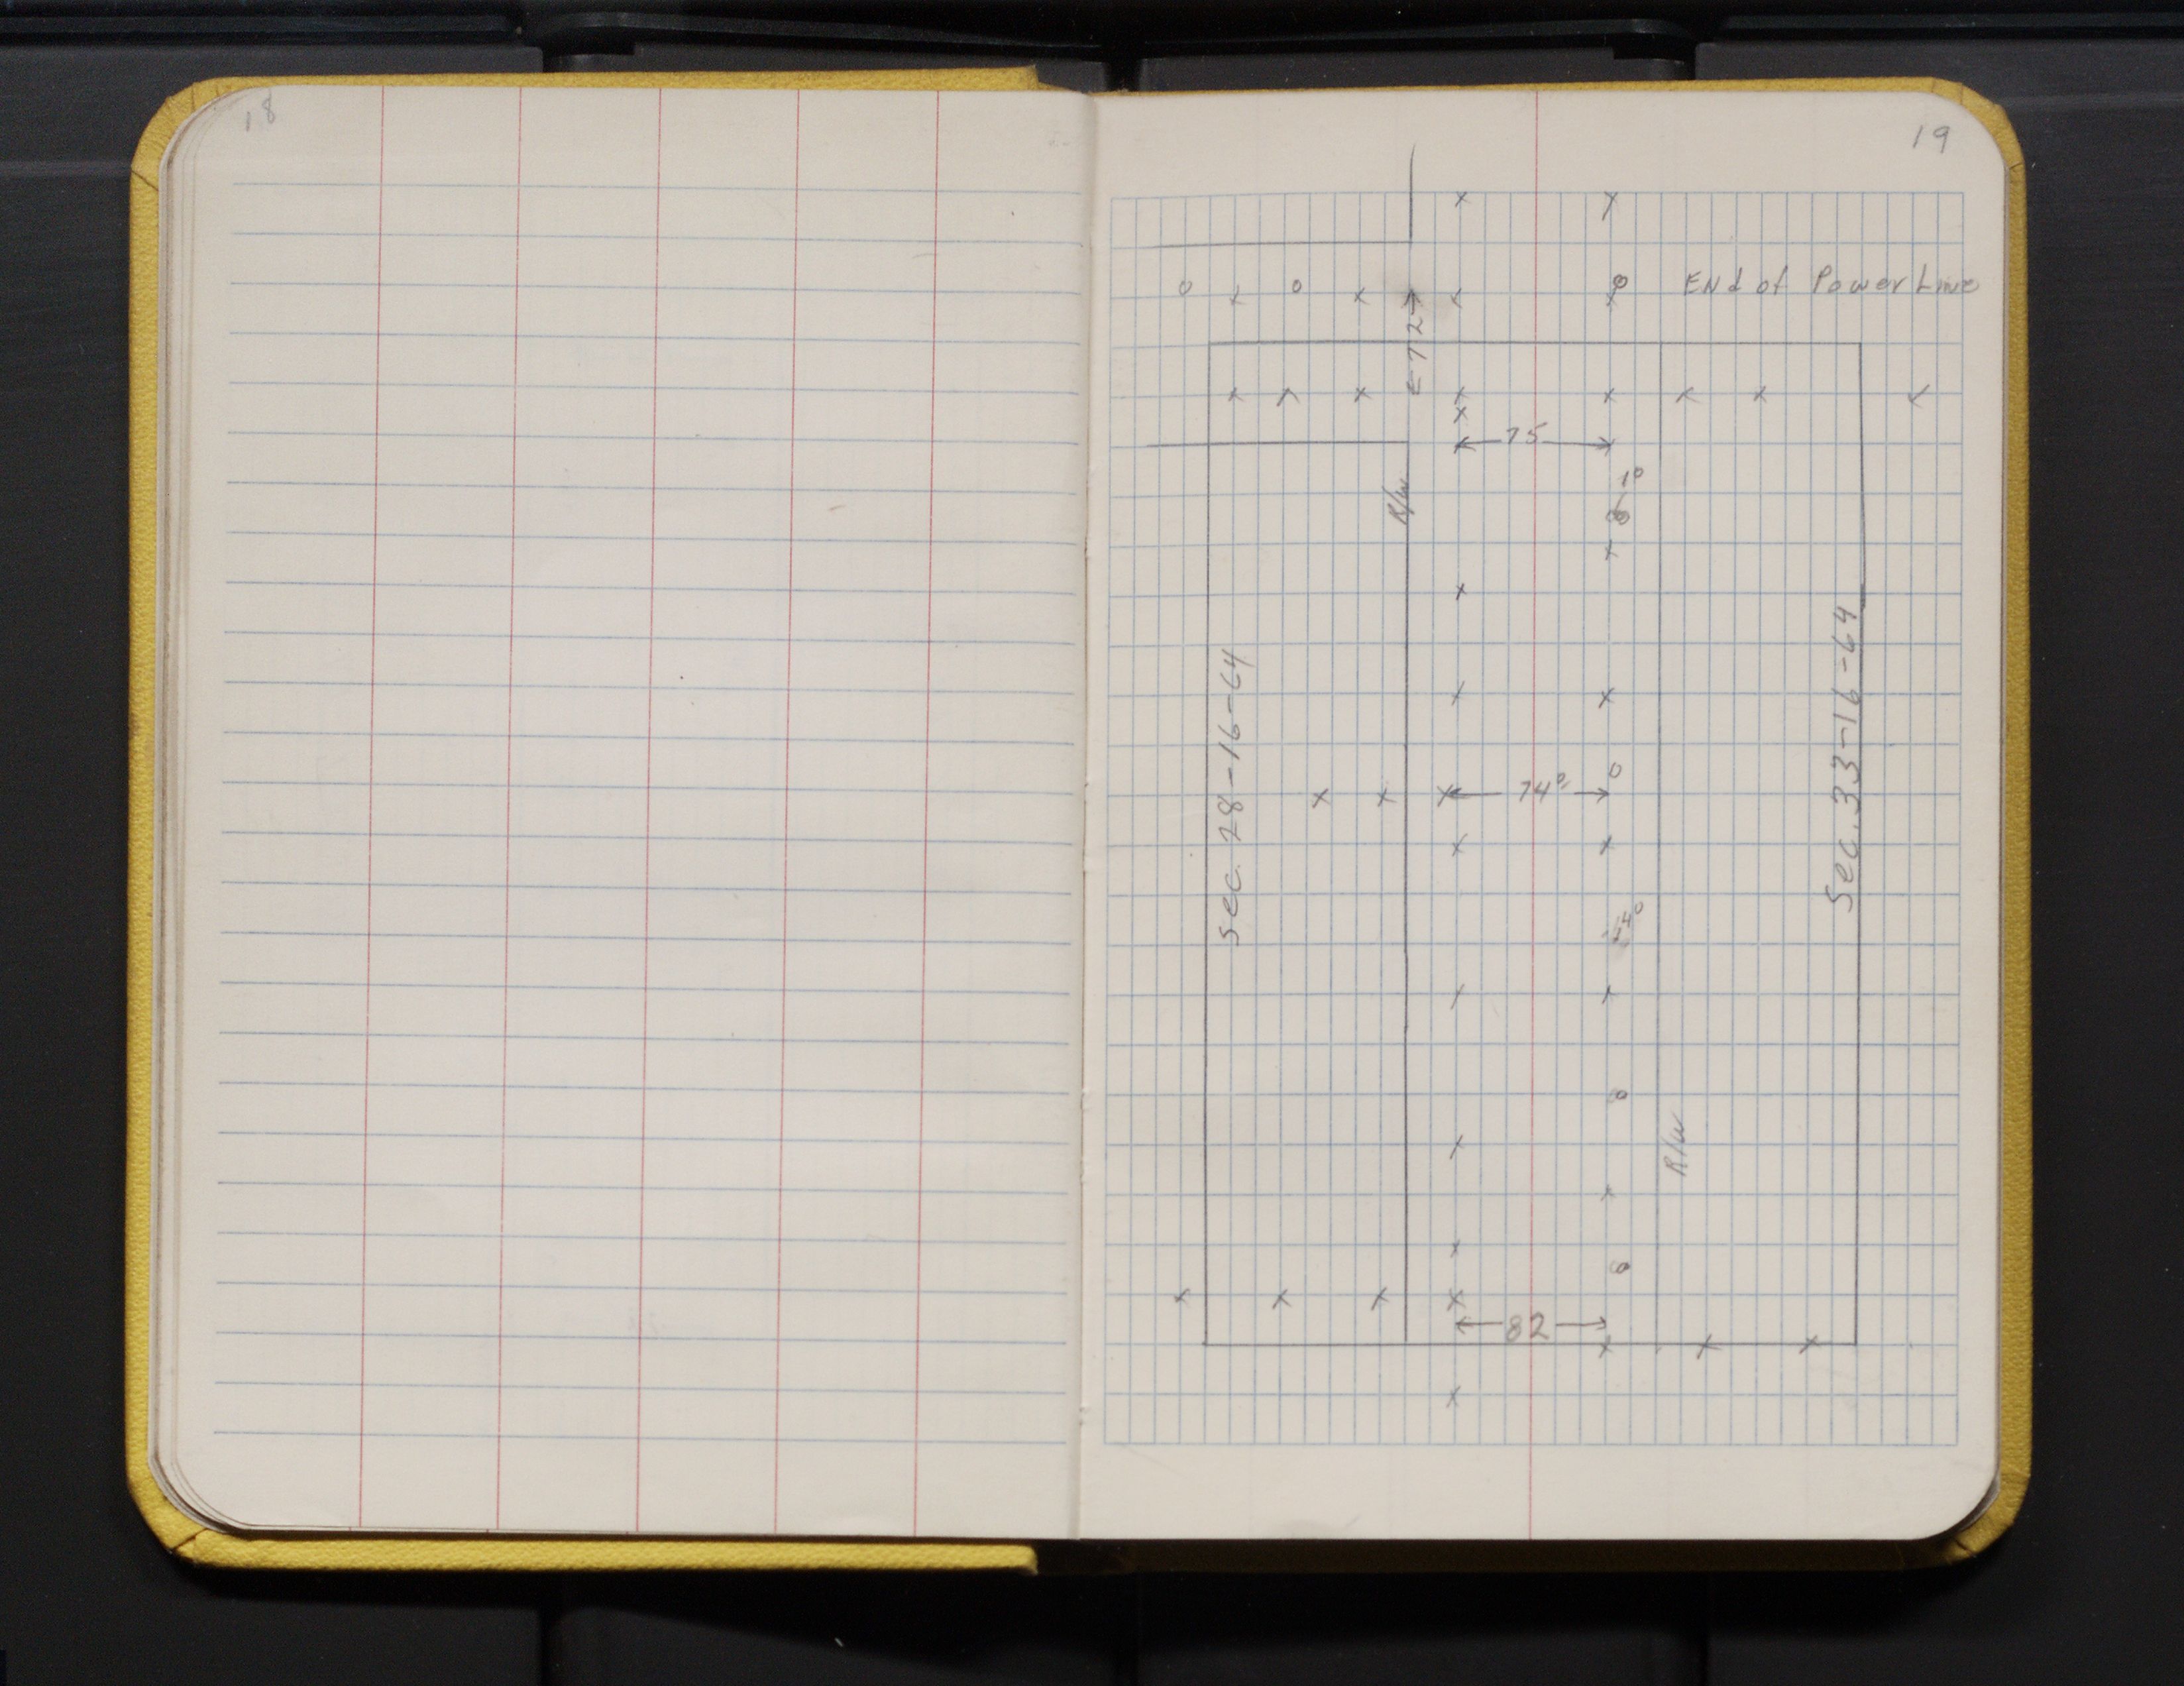 18
19
End of Power Line
← 72 →
← 75 →
R/W
1⁰
Sec. 28-16-64
Sec. 33-16-64
← 74⁰ →
R/W
← 82 →